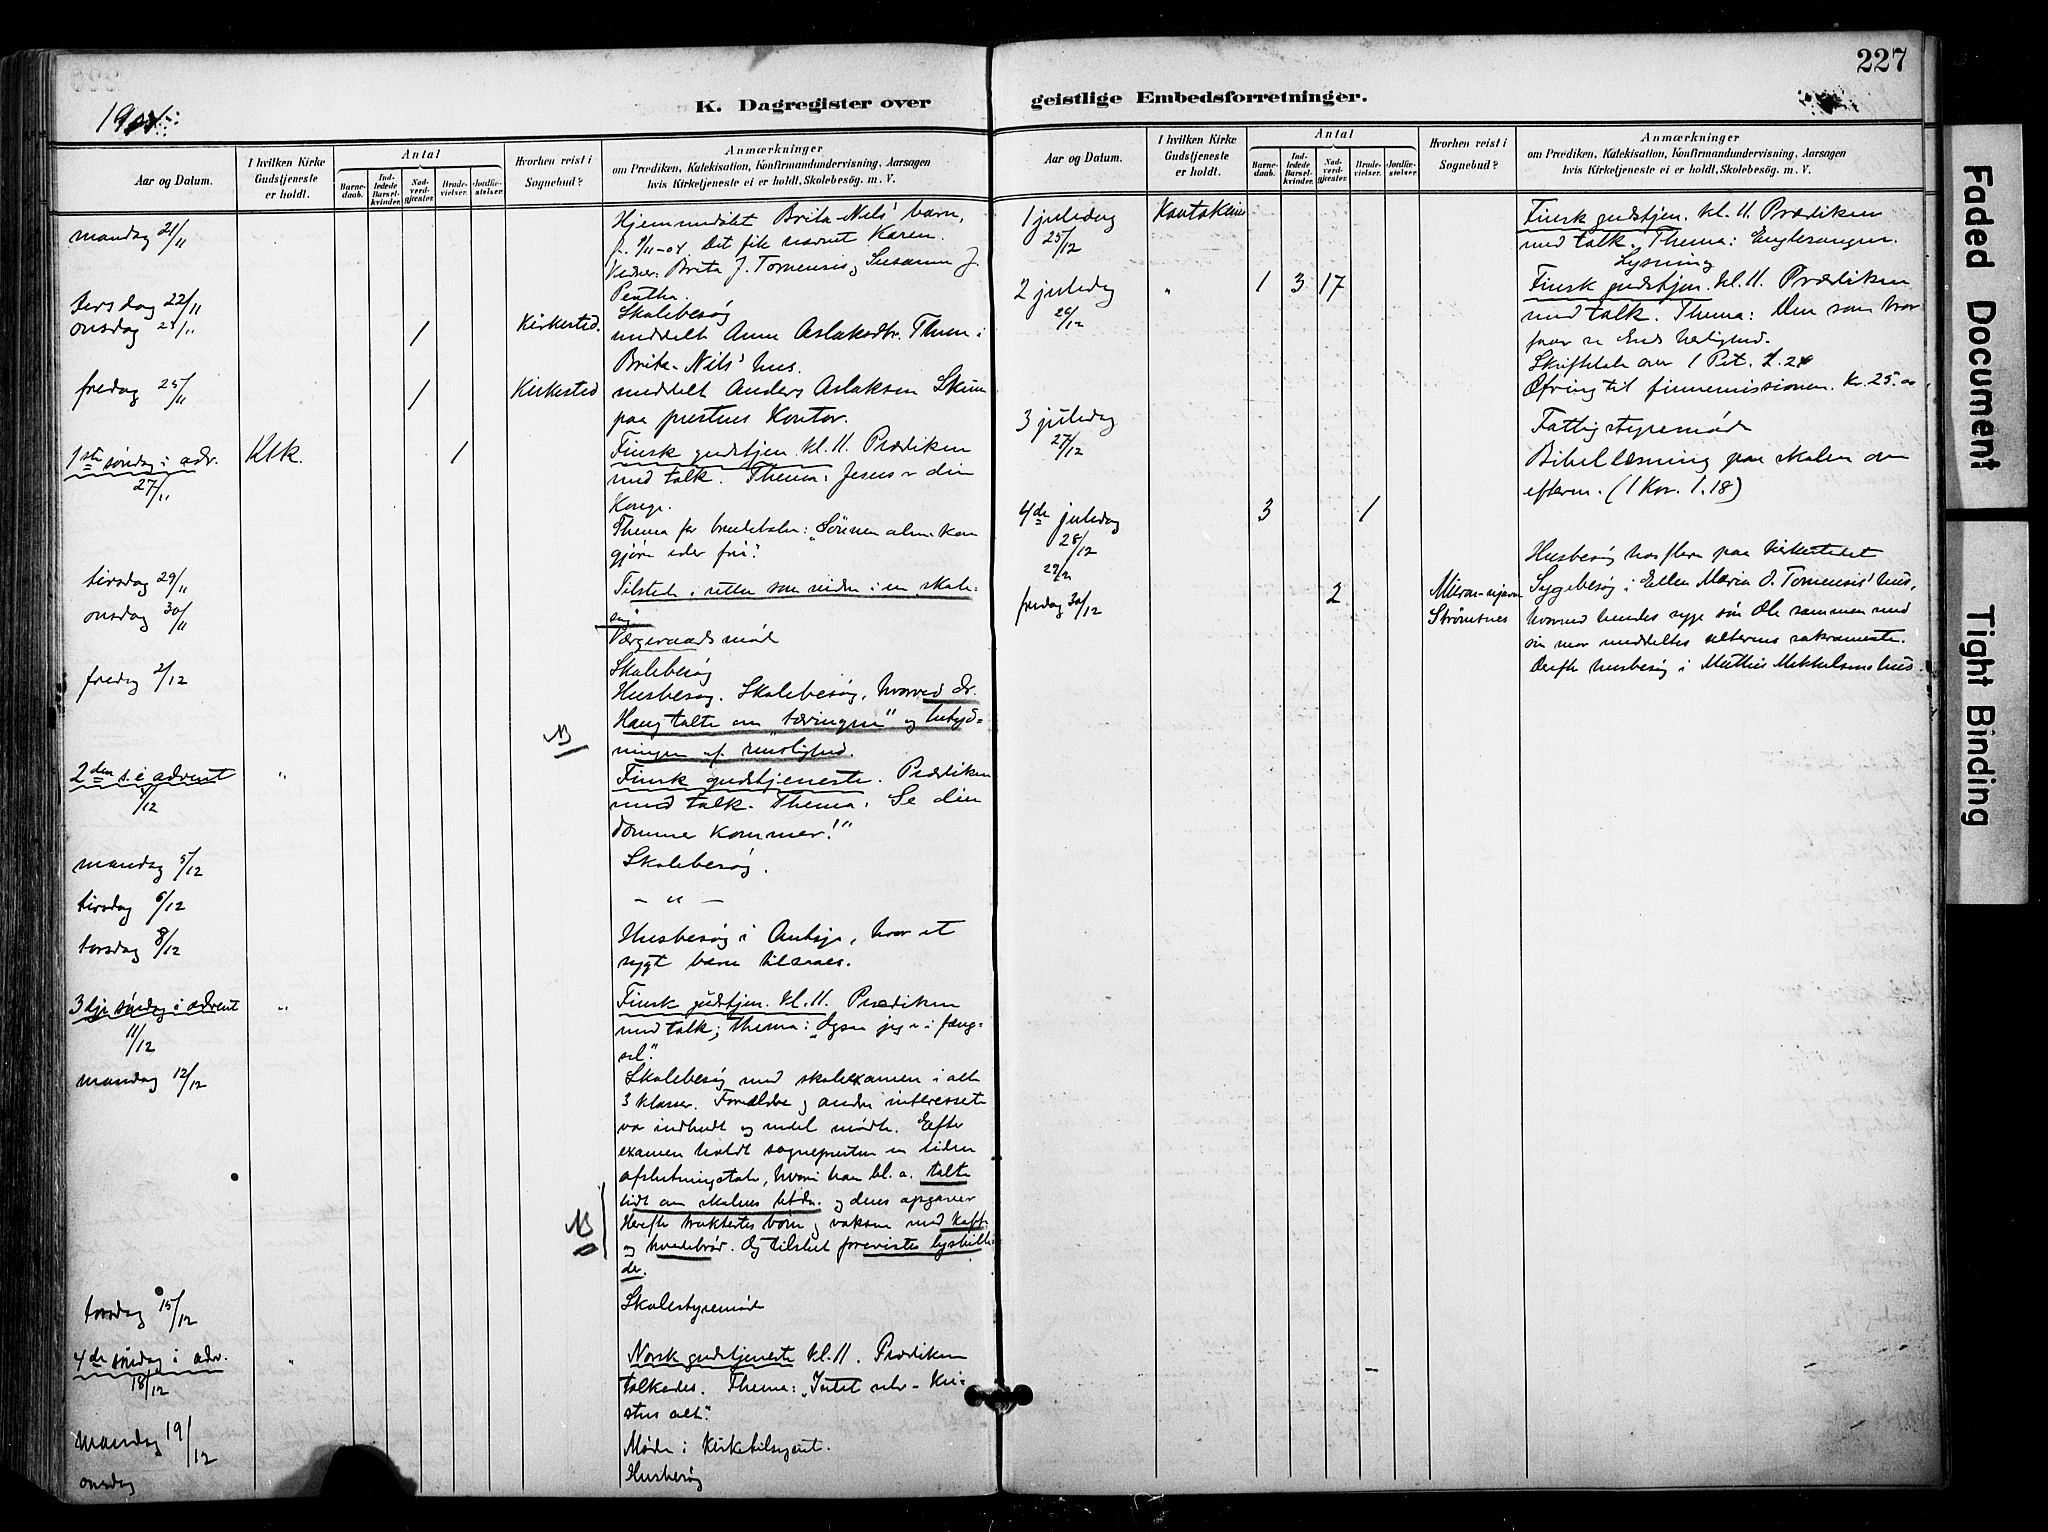 227
K. Dagregister over
geistlige Embedsforretninger.
1904.
Aar og Datum.
I hvilken Kirke
Gudstjeneste
er holdt.
Antal
Barne-
daab.
Ind-
ledede
Barsel-
kvinder.
Nad-
verd-
gjester.
Brude-
vielser.
Jordfæ-
stelser.
Hvorhen reist i
Sognebud?
Anmærkninger
om Prædiken, Katekisation, Konfirmandundervisning, Aarsagen
hvis Kirketjeneste ei er holdt, Skolebesøg. m. V.
mandag 21/11
Hjemmedøbt Brita Nils' barn,
f. 9/11-04. Det fik navnet Karen.
Vidner: Brita J. Tornensis, Susanna J.
Pentha.
tirsdag 22/11
Skolebesøg
onsdag 23/11 1 Kirkested.
meddelt Anne Aslaksdtr. Thuri i
Brita-Nils' hus.
fredag 25/11 1 Kirkested
meddelt Anders Aslaksen Skum
paa prestens Kontor.
1ste søndag i adv. Ktk. 1
27/11
Finsk gudstjen. kl. 11. Prædiken
med tolk. Thema: Jesus er din
Konge.
Thema for brudetalen: "Sønnen alene kan
gjøre eder fri".
tirsdag 29/11
Tilstede i retten som vidne i en skole-
sag
onsdag 30/11
Værgeraadsmøde
Skolebesøg
fredag 2/12
Husbesøg. Skolebesøg, hvorved dr.
Haug talte om "tæringen" og betyd-
ningen af renslighed.
NB
2den s. i advent "
4/12
Finsk gudstjeneste. Prædiken
med tolk. Thema: Se din
dommer kommer!"
mandag 5/12
Skolebesøg.
tirsdag 6/12
— " —
torsdag 8/12
Husbesøg i Autsje, hvor et
sygt barn tilsaaes.
3dje søndag i advent "
11/12
Finsk gudstjen. kl. 11. Prædiken
med tolk; Thema: "Ogsaa jeg er i fæng-
sel".
mandag 12/12
Skolebesøg med skolexamen i alle
3 klasser. Forældre og andre interesserte
var indbudt og endel mødte. Efter
examen holdt sognepresten en liden
afslutningstale, hvori han bl. a. talte
lidt om skolens betydn. og dens opgaver
Herefter trakteres børn og voksne med kaffe
og hvedebrød. Og tilslut forevistes lysbille-
der.
NB
torsdag 15/12
Skolestyremøde
4de søndag i adv. "
18/12
Norsk gudstjeneste kl. 11. Prædiken
tolkedes. Thema: "Intet selv - Kri-
stus alt".
mandag 19/12
Møde i Kirketilsynet.
onsdag
Husbesøg
Aar og Datum.
I hvilken Kirke
Gudstjeneste
er holdt.
Antal
Barne-
daab.
Ind-
ledede
Barsel-
kvinder.
Nad-
verd-
gjester.
Brude-
vielser.
Jordfæ-
stelser.
Hvorhen reist i
Sognebud?
Anmærkninger
om Prædiken, Katekisation, Konfirmandundervisning, Aarsagen
hvis Kirketjeneste ei er holdt, Skolebesøg. m. V.
1 juledag Kautokeino
25/12
Finsk gudstjen. kl. 11. Prædiken
med tolk. Thema: Englesangen.
Lysning
2 juledag " 1 3 17
26/12
Finsk gudstjen. kl. 11. Prædiken
med tolk. Thema: Den som tror
faar se Guds herlighed.
Skriftetale over 1 Pet. 2. 24
Ofring til finnemissionen. Kr. 25.00
3 juledag
27/12
Fattigstyremøde
Bibellæsning paa skolen om
efterm. (1 Kor. 1. 18)
4de juledag 3 1
28/12
29/12
Husbesøg hos flere paa kirkestedet
fredag 30/12 2 Mieron-
Strømsnes
Sygebesøg i Ellen Maria O. Tornensis' hus,
hvorved hendes syge søn Ole sammen med
sin mor meddeltes alterens sakramente.
Derefter husbesøg i Mathis Mikkelsens hus.
Faded Document
Tight Binding